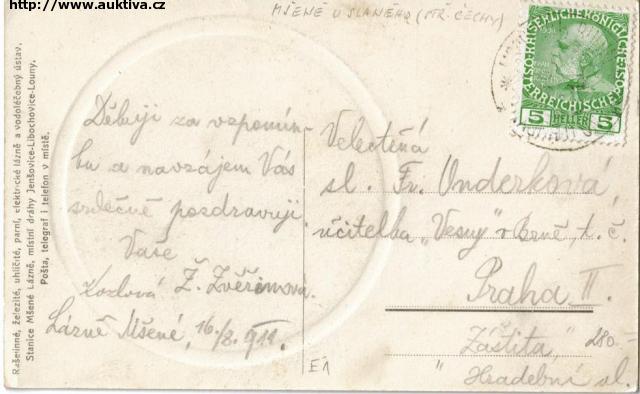 http://www.auktiva.cz
MŠENÉ U SLANÉHO (STŘ. ČECHY)
Rašelinné, železité, uhličité, parní, elektrické lázně a vodoléčebný ústav.
Stanice Mšené Lázně, místní dráhy Jenšovice-Libochovice-Louny.
Pošta, telegraf i telefon v místě.
Děkuji za vzpomín-
ku a navzájem Vás
srdečně pozdravuji
Vaše
Kozlová Ž. Zvěřinova.
Lázně Mšené, 16/8. 911.
E1
5 HELLER 5
Velectěná
sl. Fr. Underková,
učitelka „Vesny" v Brně, t. č.
Praha II.
„Záštita,"
Hradební ul.
280-